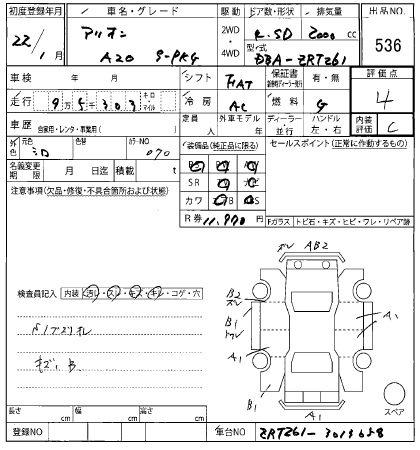 初度登録年月
車名・グレード
駆動
ドア数・形状
排気量
出品NO.
22年 1月
アリオン
A20 S-PKG
2WD
・
4WD
4 . SD
2000 cc
型式
DBA-ZRT261
536
車検 年 月
シフト
FAT
保証書
有・無
評価点
走行
95303
キロ・マイル
冷房
AC
燃料
G
4
車歴
自家用・レンタ・事業用( )
定員 人
外車モデル 年
ディーラー・並行
ハンドル 左・右
内装評価
C
外色
元色
色替
カラーNO
070
装備品(純正品に限る)
セールスポイント(正常に作動するもの)
名義変更期限 月 日迄
積載 t
SR
カワ
R券 11,970 円
注意事項(欠品・修復・不具合箇所および状態)
Fガラス トビ石・キズ・ヒビ・ワレ・リペア跡
検査員記入
内装 汚レ・スレ・キズ・キレ・コゲ・穴
キズ、B
AB2
B2
B1
A1
A1
B1
A1
スペア
長さ cm
幅 cm
高さ cm
登録NO
車台NO
ZRT261-3019658